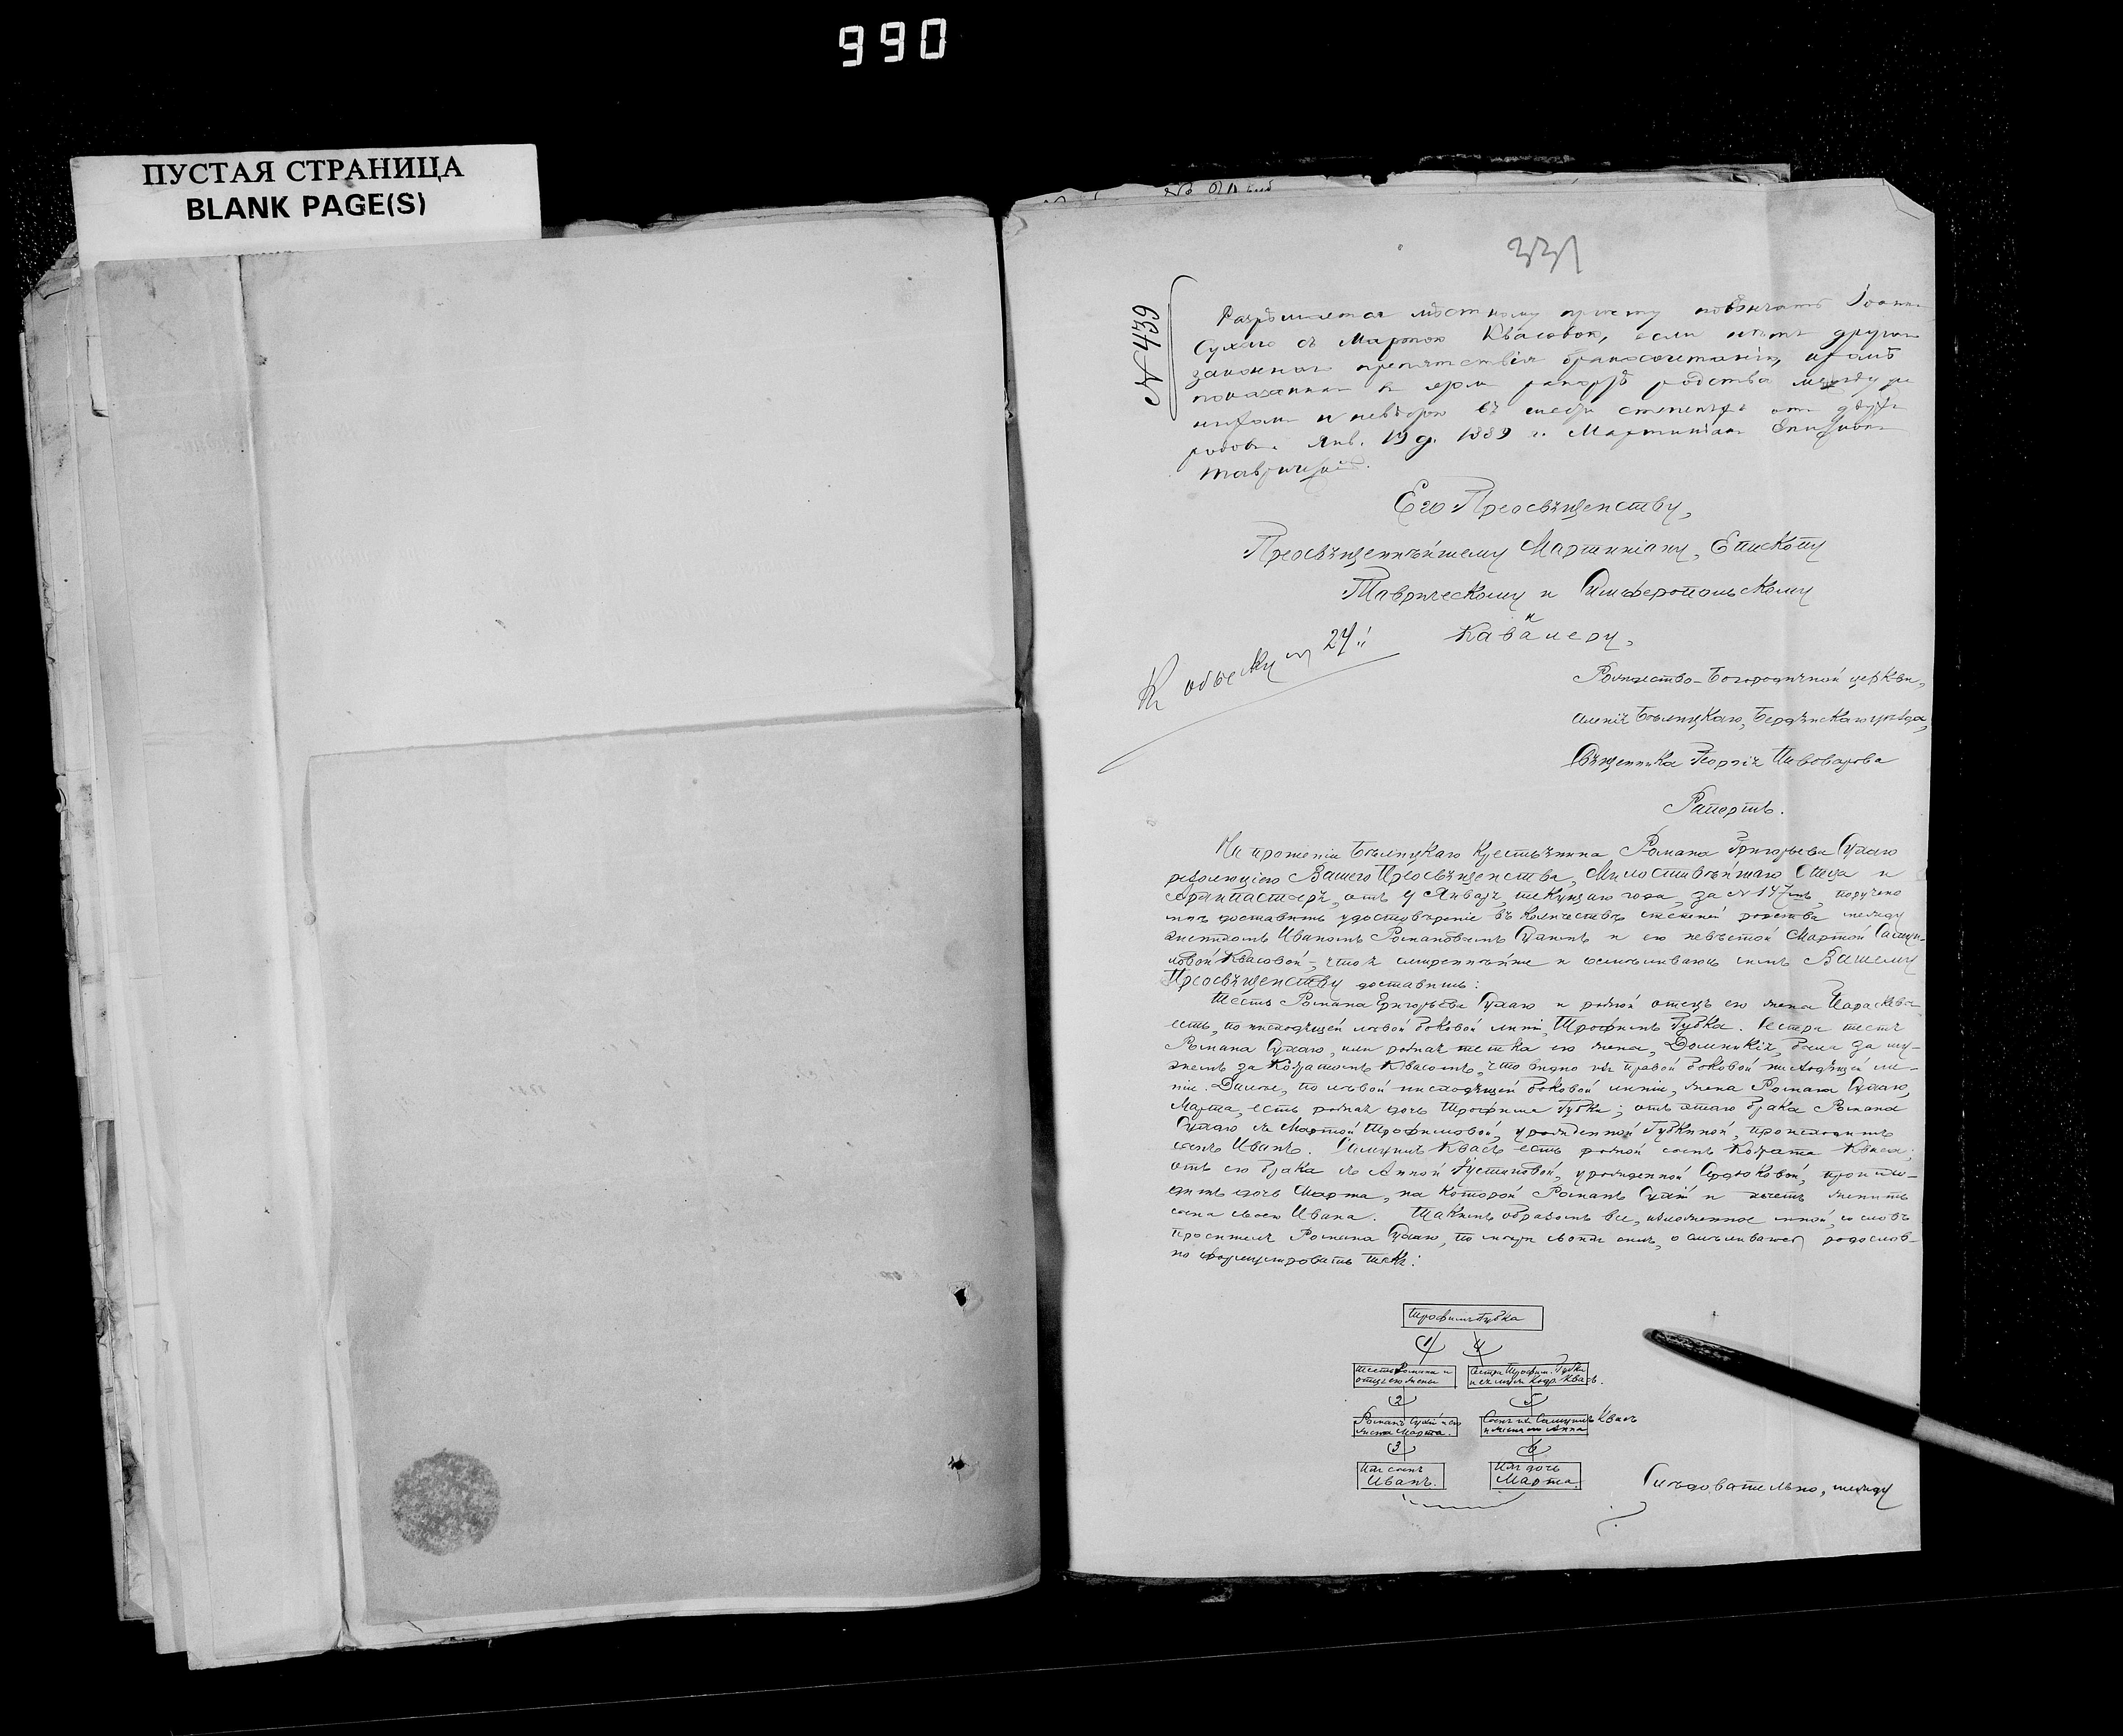 990
ПУСТАЯ СТРАНИЦА
BLANK PAGE(S)
331
№ 439
Разрѣшается мѣстному причту повѣнчать Іоанна
Сухого съ Марѳою Квасовою, если нѣтъ другихъ
законныхъ препятствій бракосочетанію, кромѣ
показаннаго въ семъ рапортѣ родства между же-
нихомъ и невѣстою въ шести степеняхъ отъ двухъ
родовъ. Янв. 19 д. 1889 г. Мартиніанъ Епископъ
Таврическій.
Его Преосвященству,
Преосвященнѣйшему Мартиніану, Епископу
Таврическому и Симферопольскому
и
Кавалеру,
Къ обыску 24
Рождество-Богородичной церкви,
имѣнія Бѣлицкаго, Бердянскаго уѣзда,
Священника Георгія Пивоварова
Рапортъ.
На прошеніи Бѣлицкаго крестьянина Романа Григорьева Сухаго
резолюціею Вашего Преосвященства, Милостивѣйшаго Отца и
Архипастыря, отъ 9 Января текущаго года, за № 147мъ, поручено
мнѣ доставить удостовѣреніе въ количествѣ степеней родства между
женихомъ Иваномъ Романовымъ Сухимъ и его невѣстой Марѳой Самуи-
ловой Квасовой, что я смиреннѣйше и осмѣливаюсь симъ Вашему
Преосвященству доставить:
Тесть Романа Григорьева Сухаго и родной отецъ его жены
есть, по нисходящей лѣвой боковой линіи, Трофимъ Губка. Сестра тестя
Романа Сухаго, или родная тетка его жены, Домникія, была за му-
жемъ за Кодратомъ Квасомъ, что видно изъ правой боковой нисходящей ли-
ніи. Далѣе, по лѣвой нисходящей боковой линіи, жена Романа Сухаго,
Марѳа, есть родная дочь Трофима Губки; отъ этаго брака Романа
Сухаго съ Марѳой Трофимовой, урожденной Губкиной, происходитъ
сынъ Иванъ. Самуилъ Квасъ есть родной сынъ Кодрата Кваса;
отъ его брака съ Анной Іустиновой, урожденной Сердюковой, происхо-
дитъ дочь Марѳа, на которой Романъ Сухій и хочетъ женить
сына своего Ивана. Такимъ образомъ все, изложенное мной, со словъ
просителя Романа Сухаго, осмѣливаюсь родослов-
но формулировать такъ:
Трофимъ Губка
1 4
Тесть Романа и
отецъ его жены
Сестра Трофим. Губки
и ея мужъ Кодр. Квасъ.
2 5
Романъ Сухій и его
жена Марѳа.
Сынъ ихъ Самуилъ Квасъ
и жена его Анна
3 6
Ихъ сынъ
Иванъ.
Ихъ дочь
Марѳа.
Слѣдовательно, между